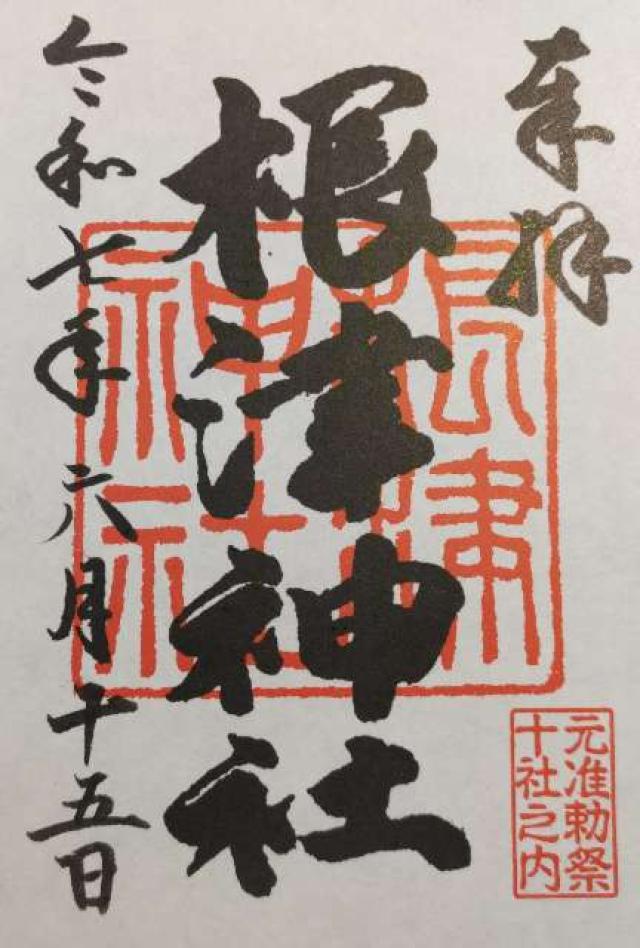 奉拝
根津神社
根津神社
元准勅祭
十社之内
令和七年六月十五日